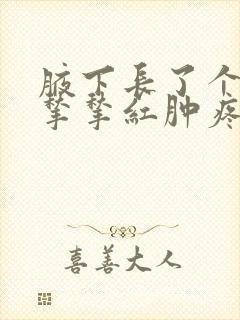 腋下長了个
挚挚紅肿疼
喜善大人